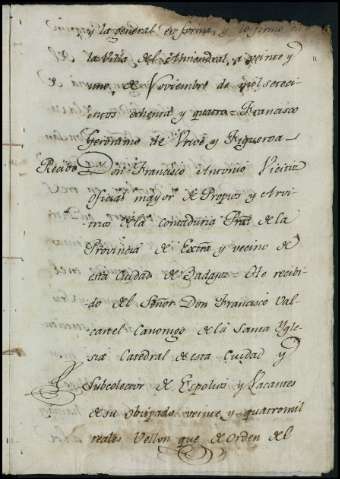 y la general en forma, y lo firmo en
la Villa del Almendral, a veinte y
uno, de Noviembre de mil setecie
ntos ochenta y quatro = Francisco
Geronimo de Vrive y Figueroa =
Recibo Don Francisco Antonio Vieitiz
oficial mayor de Propios y Arvi
trios de la contaduria Pral de la
Provincia de Extra y vecino de
esta Ciudad de Badajoz = He recibi
do del Señor Don Francisco Val
carcel Canonigo de la Santa Ygle
sia Catedral de esta Ciudad y
Subcolector de Espolios y Vacantes
de su obispado veinte y quatro mil
reales Vellon que de orden del